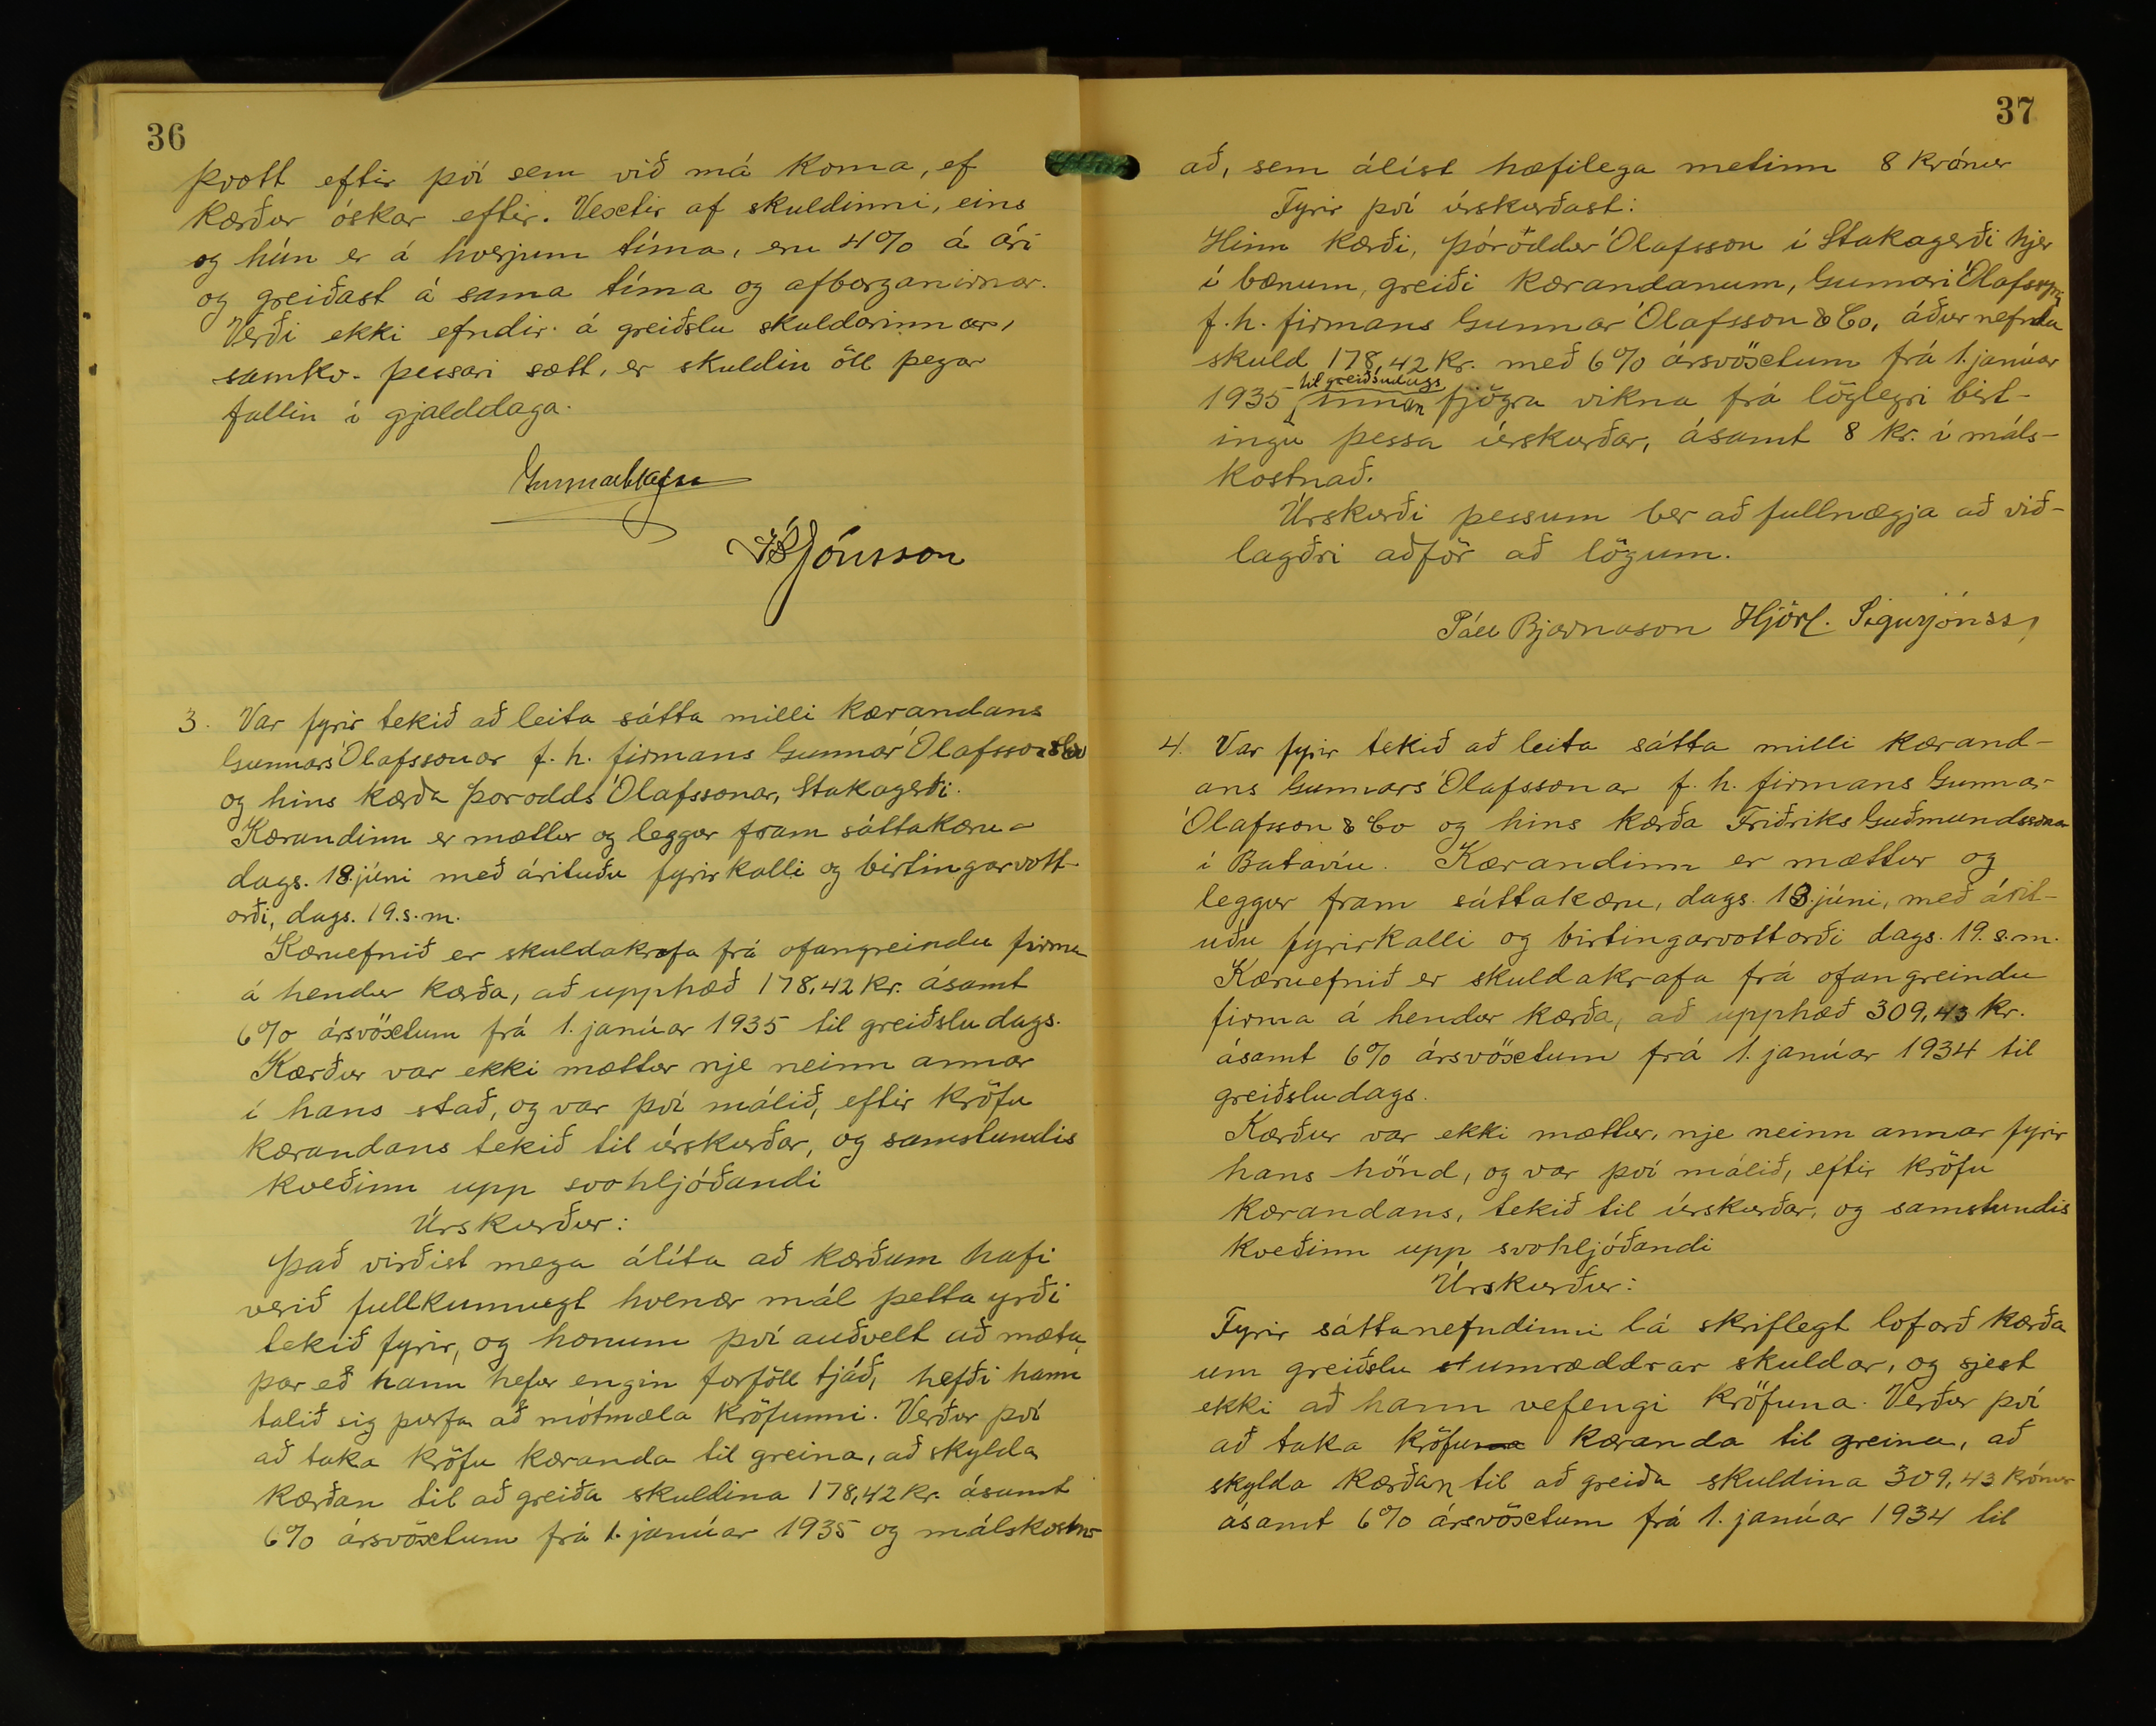 36
þvott eftir því sem við má koma, ef
kærður óskar eftir. Vextir af skuldinni, eins
og hún er á hverjum tíma, eru 4% á ári
og greiðast á sama tíma og afborganirnar.
Verði ekki efndir á greiðslu skuldarinnar,
samkv. þessari sætt, er skuldin öll þegar
fallin í gjalddaga.
Jónsson
3. Var fyrir tekið að leita sátta milli kærandans
Gunnars Ólafssonar f. h. firmans Gunnar Ólafsson & Co
og hins kærða Þorodds Ólafssonar, Stakagerði.
Kærandinn er mættur og leggur fram sáttakæru
dags. 18. júni með árituðu fyrirkalli og birtingarvott-
orði, dags. 19. s. m.
Kæruefnið er skuldakrafa frá ofangreindu firma
á hendur kærða, að upphæð 178,42 kr. ásamt
6% ársvöxtum frá 1. janúar 1935 til greiðsludags.
Kærður var ekki mættur nje neinn annar
í hans stað, og var því málið, eftir kröfu
kærandans tekið til úrskurðar, og samstundis
kveðinn upp svohljóðandi
Úrskurður:
Það virðist mega álíta að kærðum hafi
verið fullkunnugt hvenær mál þetta yrði
tekið fyrir, og honum því auðvelt að mæta,
þar eð hann hefur engin forföll tjáð, hefði hann
talið sig þurfa að mótmæla kröfunni. Verður því
að taka kröfu kæranda til greina, að skylda
kærðan til að greiða skuldina 178,42 kr. ásamt
6% ársvöxtum frá 1. janúar 1935 og málskostn-
37
að, sem álíst hæfilega metinn 8 krónur
Fyrir því úrskurðast:
Hinn kærði, Þóroddur Ólafsson í Stakagerði hjer
í bænum, greiði kærandanum, Gunnari Ólafssyni
f. h. firmans Gunnar Ólafsson & Co, áður nefnda
skuld 178,42 kr. með 6% ársvöxtum frá 1. janúar
til greiðsludags
1935 innan fjögra vikna frá löglegri birt-
ingu þessa úrskurðar, ásamt 8 kr. í máls-
kostnað.
Úrskurði þessum ber að fullnægja að við-
lagðri aðför að lögum.
Páll Bjarnason Hjörl. Sigurjónss,
4. Var fyrir tekið að leita sátta milli kærand-
ans Gunnars Ólafssonar f. h. firmans Gunnar
Ólafsson & Co og hins kærða Friðriks Guðmundssonar
í Batavíu. Kærandinn er mættur og
leggur fram sáttakæru, dags. 18. júni, með árit-
uðu fyrirkalli og birtingarvottorði dags. 19. s. m.
Kæruefnið er skuldakrafa frá ofangreindu
firma á hendur kærða, að upphæð 309,43 kr.
ásamt 6% ársvöxtum frá 1. janúar 1934 til
greiðsludags.
Kærður var ekki mættur, nje neinn annar fyrir
hans hönd, og var því málið, eftir kröfu
kærandans, tekið til úrskurðar, og samstundis
kveðinn upp svohljóðandi
Úrskurður:
Fyrir sáttanefndinni lá skriflegt loforð kærða
um greiðslu umræddrar skuldar, og sjest
ekki að hann vefengi kröfuna. Verður því
að taka kröfu kæranda til greina, að
skylda kærðan til að greiða skuldina 309,43 krónur
ásamt 6% ársvöxtum frá 1. janúar 1934 til